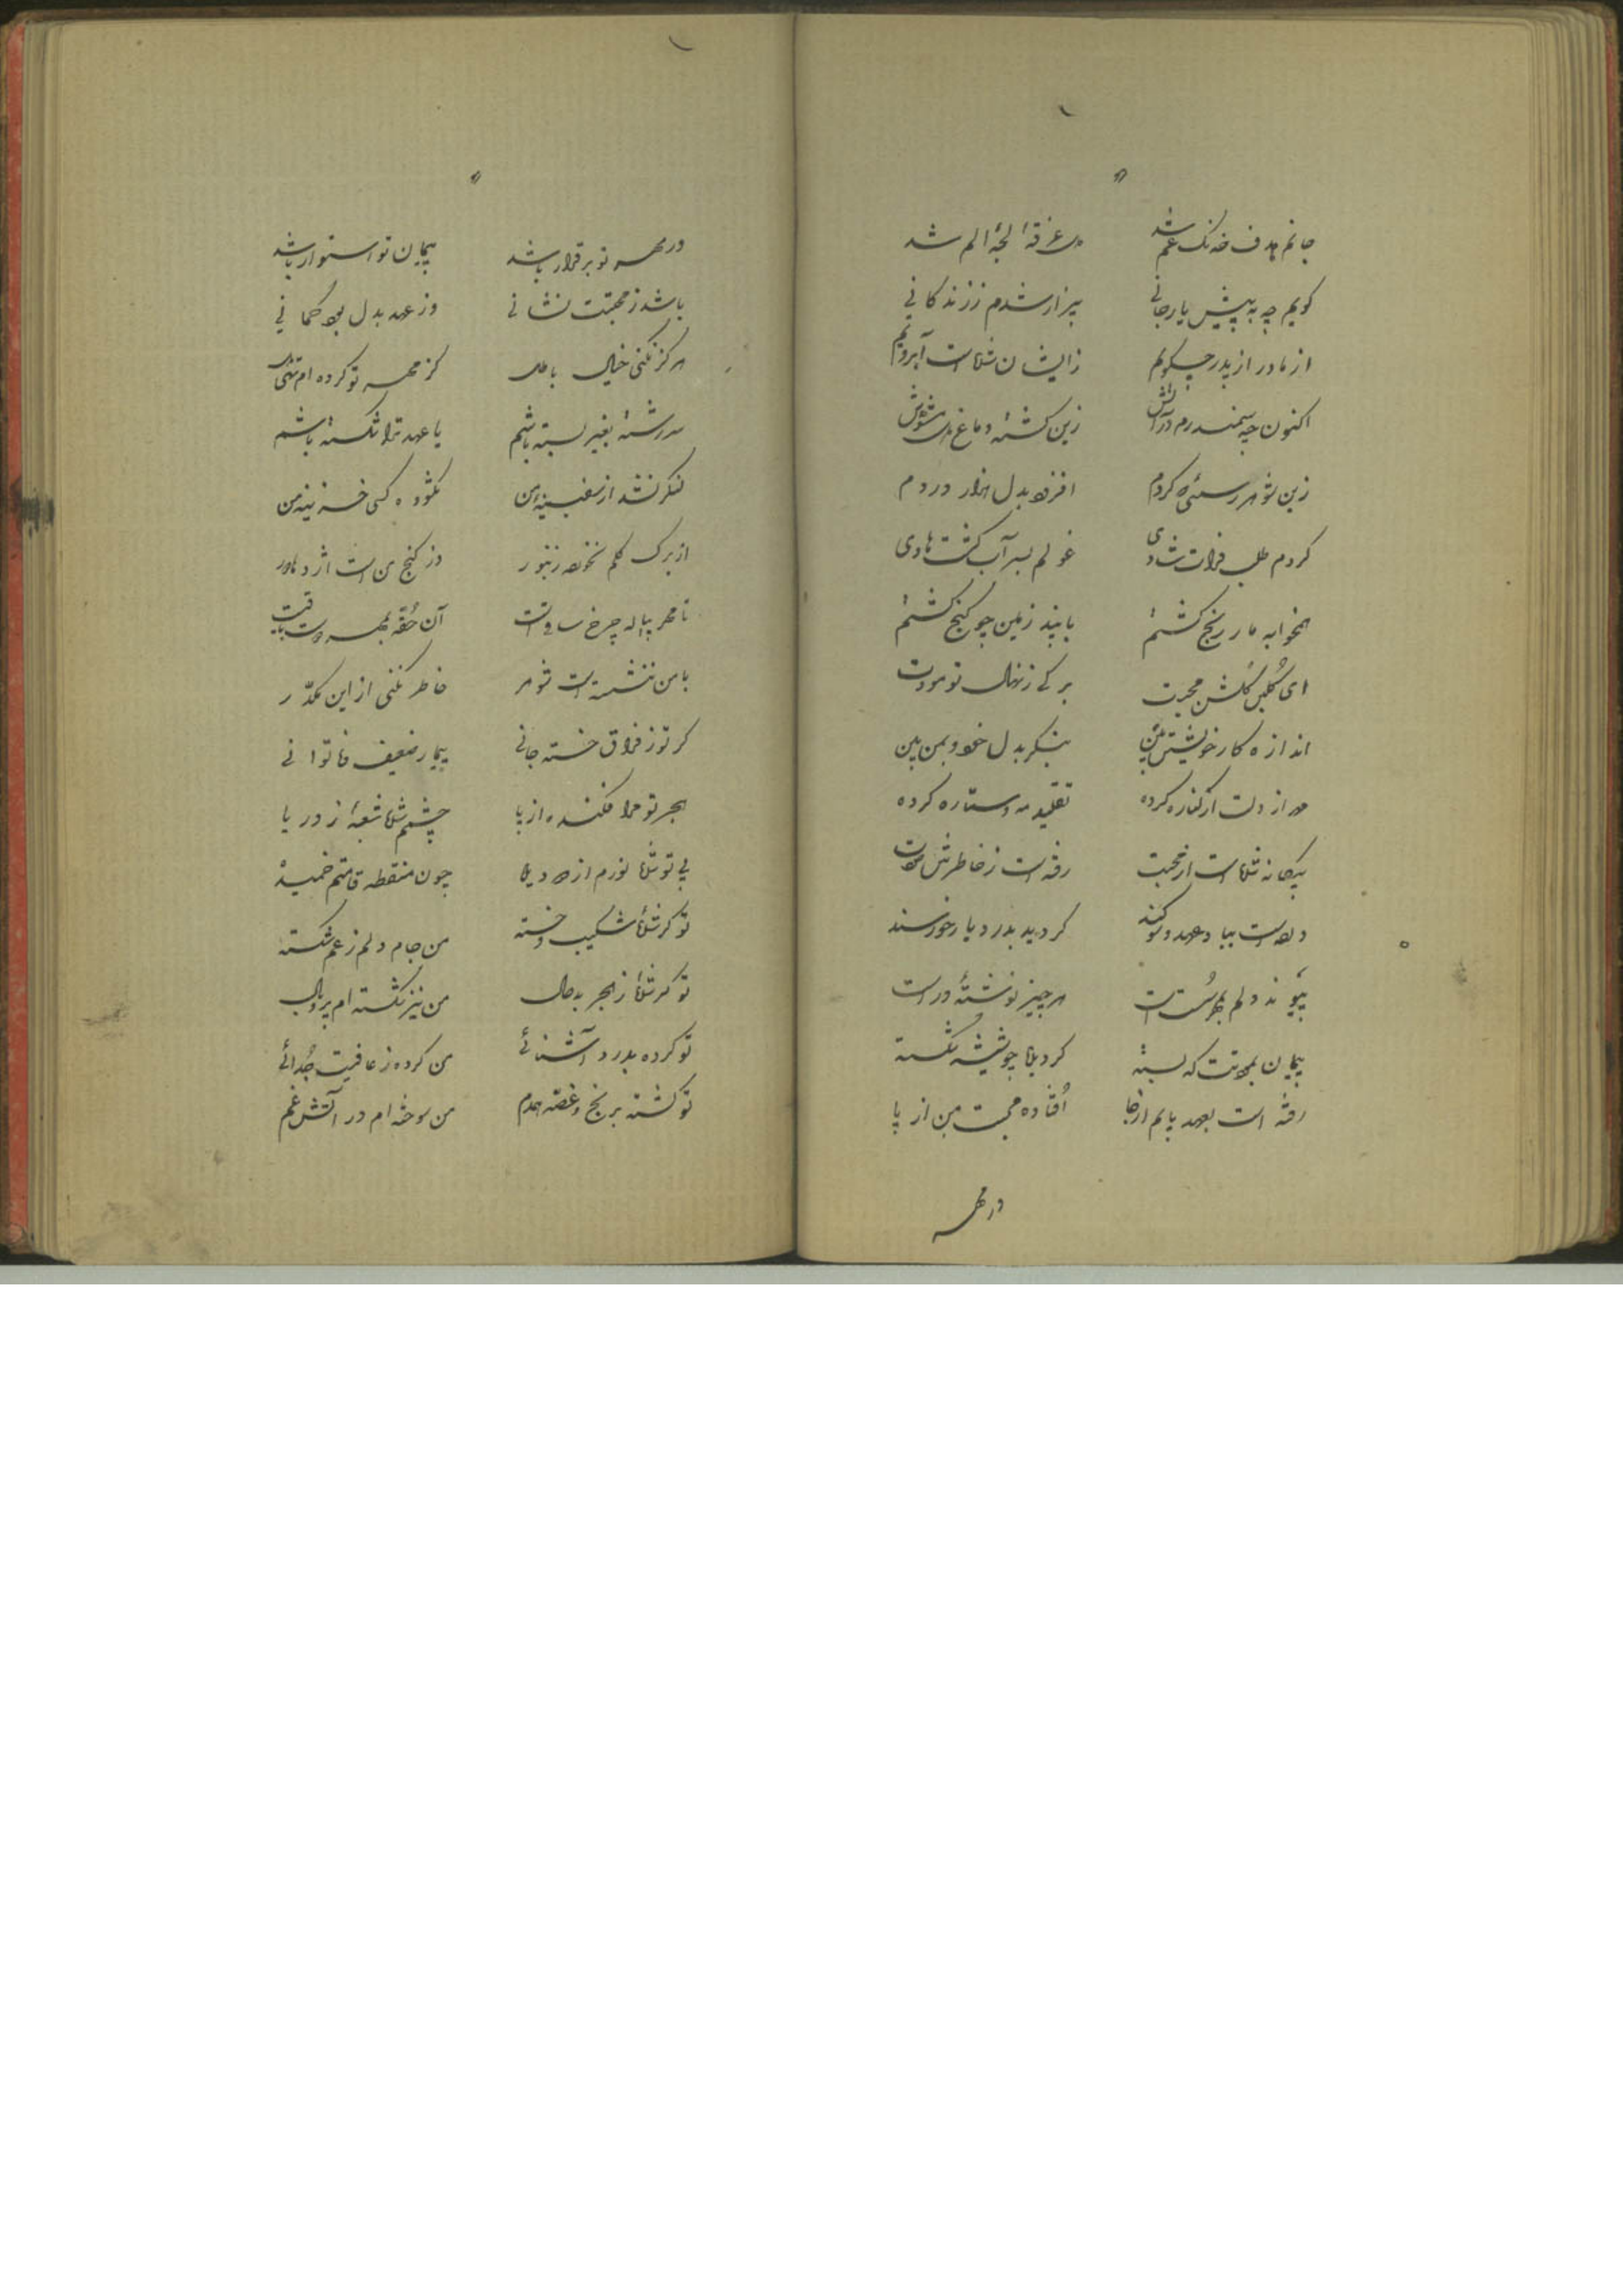 جانم هدف خدنگ غم شد
دل غرقهٔ لجهٔ الم شد
گویم چه به پیش یار جانی
بیزار شدم ز زندگانی
از مادر از پدر چگویم
زایشان شکست آبرویم
اکنون چه سمندرم در آتش
زین گشته دماغ دل مشوش
زین شوهر کردم
افزود بدل هزار دردم
کردم طلب فرات شادی
غولم بسر آب گشت هادی
همخوابه مار رنج گشتم
بابند زمین چو گنج گشتم
ای گلبن گلشن محبت
برگی ز نهال تو مودت
اندازه کار خویشتن بین
بنگر بدل خود و بمن بین
مهر از دلت ار کناره کرده
تقلید مه و ستاره کرده
بیگانه شده است از محبت
رفته است ز خاطرش مودت
گردید بدرد یار خورسند
پیوند دلم بمهر سست است
هر چیز نوشته درست
پیمان بمودتت که بسته
گردیده چو شیشه شکسته
رفته است بعهد پایم از جا
افتاده محبت من از پا
در مهر
در مهر تو برقرار باشد
پیمان تو استوار باشد
باشد ز محبتت نشانی
وز عهد بدل بود گمانی
هرگز نکنی خیال باطل
کز مهر تو کرده ام تهی دل
سررشته بغیر بسته باشم
یا عهد ترا شکسته باشم
لنگر نشد از سفینهٔ من
نگشوده کسی خزینه من
از برگ گلم نخورده زنبور
دز گنج من است اژدها دور
تا مهر پیاله چرخ ساقیست
آن حقه بمهر دوست باقیست
با من ننشسته است شوهر
خاطر نکنی از این مکدر
گر تو ز فراق خسته جانی
بیمار ضعیف ناتوانی
هجر تو مرا فکنده از پا
چشمم شده شعبهٔ ز دریا
بی تو شده نورم از دو دیده
چون منقطه قامتم خمیده
تو گر شدهٔ شکیب و خسته
من جام دلم ز غم شکسته
تو گر شدهٔ ز هجر بدحال
من نیز شکسته ام پر و بال
تو کرده بدرد آشنائی
من کرده ز عافیت جدائی
تو گشته برنج و غصه همدم
من سوخته ام در آتش غم